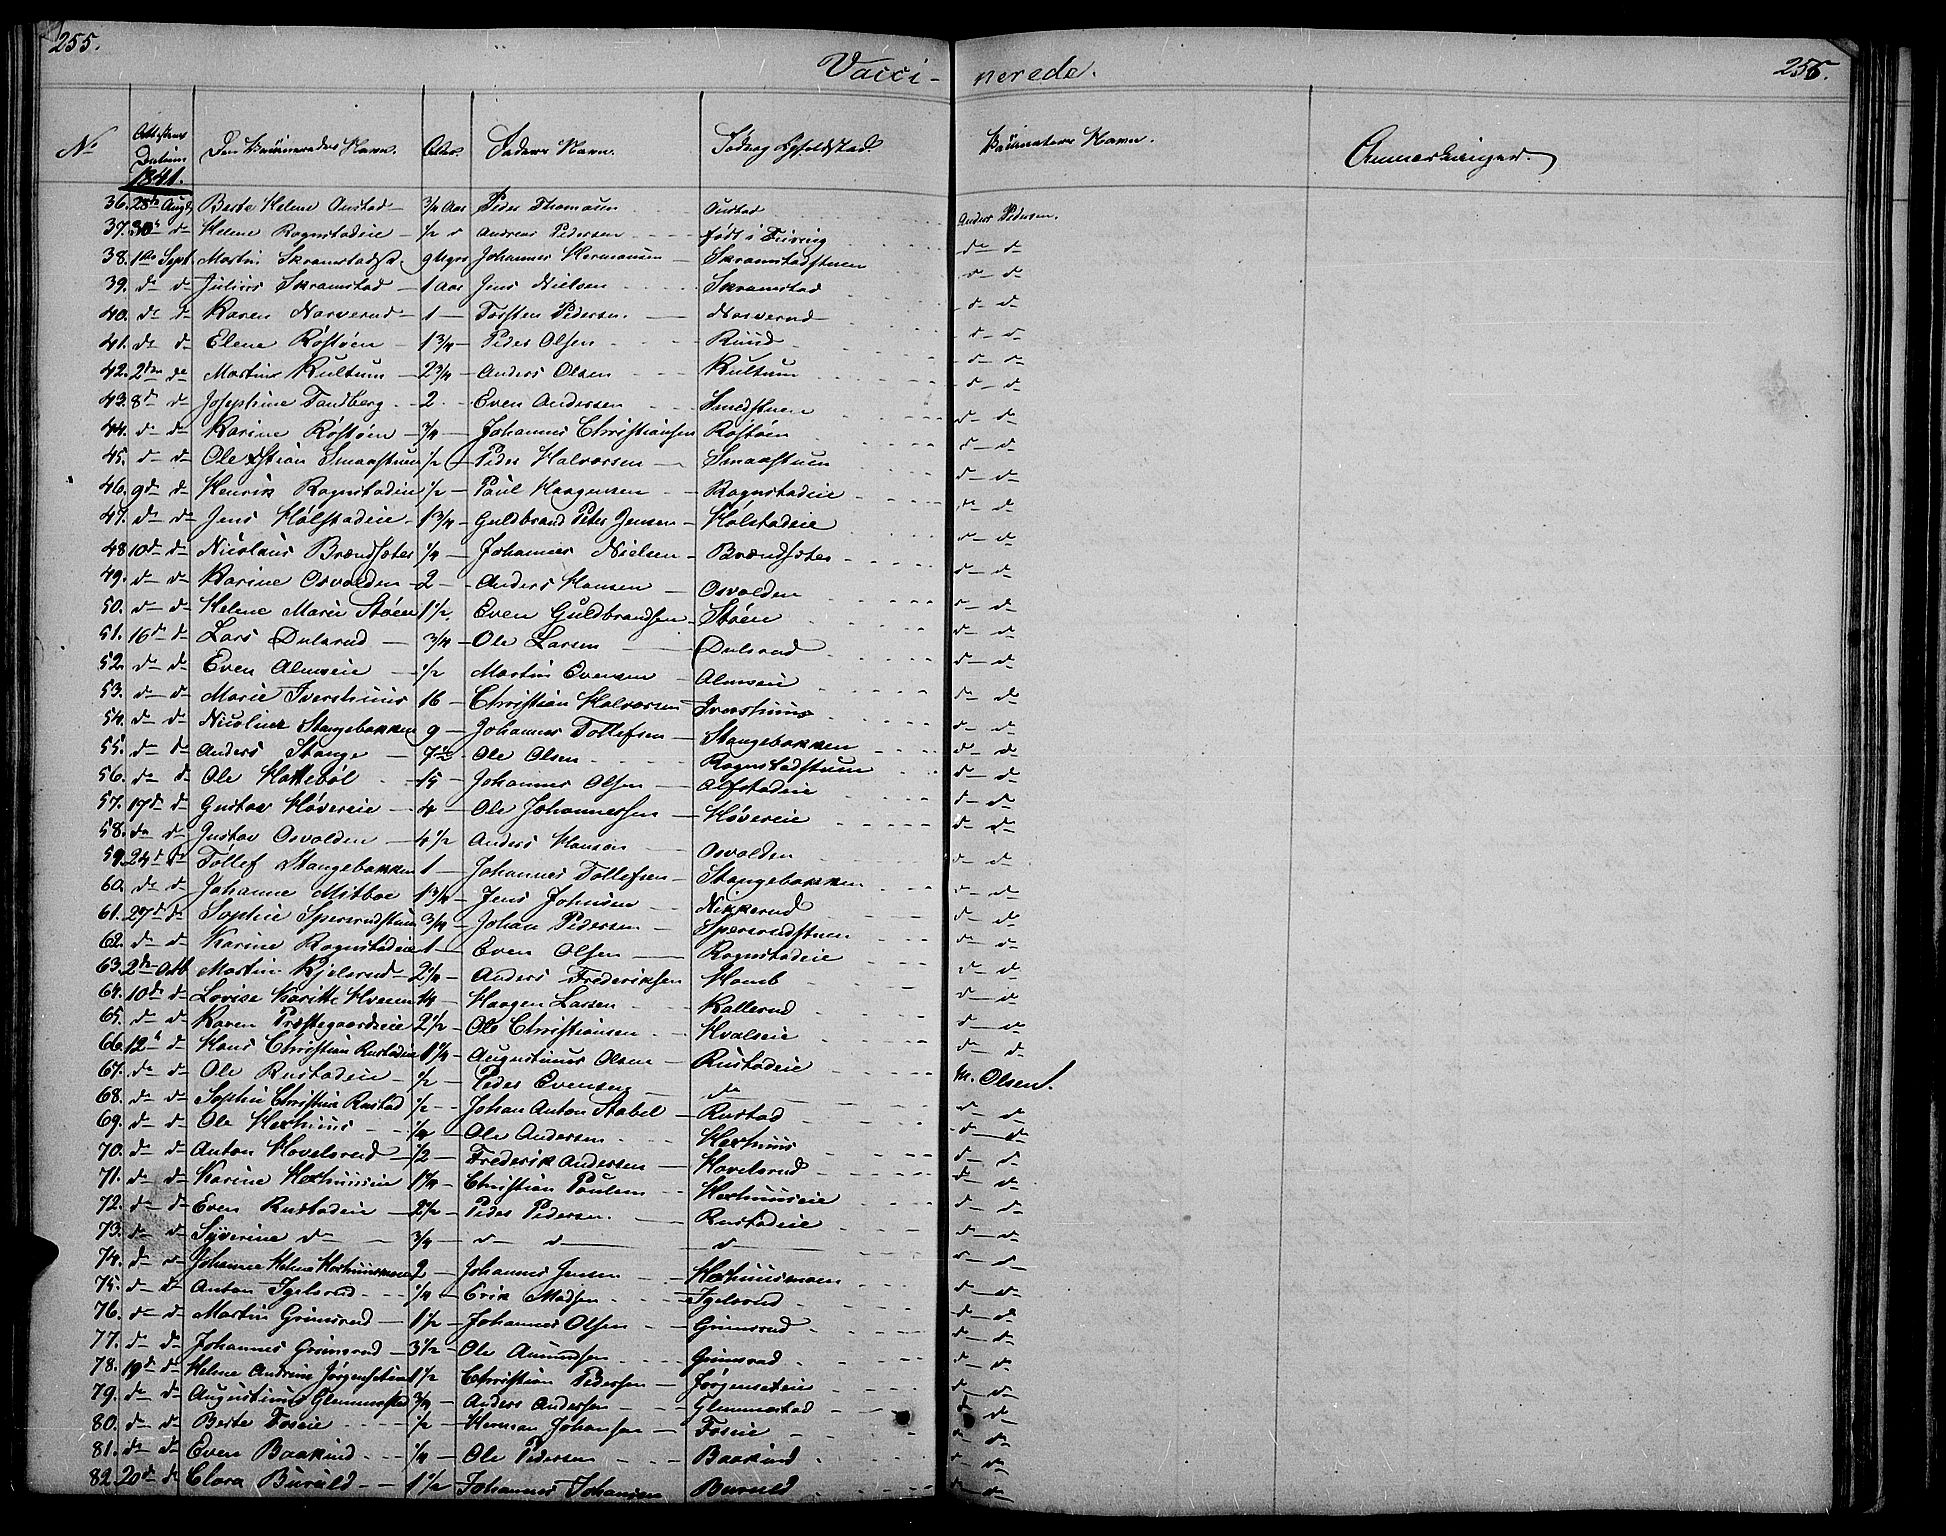 255.
Vacci-nerede.
256.
No Attestens Datum Den Vaccineredes Navn. Alder. Faders Navn. Fødsog Opholdsted. Vaccinateurs Navn. Anmærkninger.
1841.
36. 28de Aug Berte Helene Austad 3/4 Aar Peder Thomasen Austad Anders Pedersen.
37. 30te d Helene Rognstadeie 1/2 d Andreas Pedersen født i Feiring d d
38. 1ste Sept. Martin Skramstadst. 9 Ugr Johannes Hermansen Skramstadstuen d d
39. d d Julius Skramstad 1 Aar Jens Nielsen Skramstad d d
40. d d Karen Narverud 1 Torsten Pedersen Narverud d d
41. d d Elene Røstøen 1 3/4 Peder Olsen Ruud d d
42. 2den d Martin Kultum 2 3/4 Anders Olsen Kultum d d
43. 8d d Josephine Tandberg 2 Even Andersen Smedstuen d d
44. d d Karine Røstøen 3/4 Johannes Christiansen Røstøen d d
45. d d Ole Smaastuen 1/2 Peder Halvorsen Smaastuen d d
46. 9d d Henrik Rognstadeie 1/2 Paul Haagensen Rognstadeie d d
47. d d Jens Hølstadeie 1 3/4 Guldbrand Peter Jensen Hølstadeie d d
48 10d d Nicolaus Brændsæter 1/4 Johannes Nielsen Brændsæter d d
49. d d Karine Osvolden 2 Anders Hansen Osvolden d d
50. d d Helene Marie Støen 1 1/2 Even Guldbrandsen Støen d d
51. 16d d Lars Dulsrud 3/4 Ole Larsen Dulsrud d d
52. d d Even Almseie 1/2 Martin Evensen Almseie d d
53. d d Marie Ivershuus 16 Christian Halvorsen Ivershuus d d
54. d d Nicoline Stangebakken 9 Johannes Tollefsen Stangebakken d d
55. d d Anders Stange 7 1/2 Ole Olsen Rognstadstuen d d
56. d d Ole Hattebøl 15 Johannes Olsen Alfstadeie d d
57. 17d d Gustav Høvereie 4 Ole Johannessen Høvereie d d
58. d d Gustav Osvolden 4 1/2 Anders Hansen Osvolden d d
59. 24d d Tollef Stangebakken 1 Johannes Tollefsen Stangebakken d d
60. d d Johanne Mitboe 1 3/4 Jens Johnsen Nikkerud d d
61. 27d d Sophie Spersrudstuen 3/4 Johan Pedersen Spersrudstuen d d
62. d d Karine Rognstadeie 1 Even Olsen Rognstadeie d d
63. 2den Oct Martin Kjelsrud 2 1/4 Anders Frederiksen Homb d d
64. 10d d Lovise 14 Haagen Larsen Kallerud d d
65. d d Karen Præstegaardseie 2 1/2 Ole Christiansen Hvalseie d d
66. 12te d Hans Christian Rustadeie 1 1/4 Augustinus Olsen Rustadeie d d
67. d d Ole Rustadeie 1/2 Peder Evensen d M. Olsen.
68. d d Sophie Christine Rustad 1/2 Johan Anton Stabel Rustad d d
69. d d Ole Hexhuus 1/4 Ole Andersen Hexhuus d d
70. d d Anton Hovelsrud 1/2 Frederik Andersen Hovelsrud d d
71. d d Karine Hexhuuseie 1 1/4 Christian Paulsen Hexhuuseie d d
72. d d Even Rustadeie 2 1/2 Peder Pedersen Rustadeie d d
73. d d Syverine d 3/4 d d d d d
74. d d Johanne Helene Hexhuusmoen 2 Johannes Jensen Hexhuusmoen d d
75. d d Anton Igelsrud 1/4 Erik Madsen Igelsrud d d
76. d d Martin Grimsrud 1 1/2 Johannes Olsen Grimsrud d d
77. d d Johannes Grimsrud 3 1/2 Ole Amundsen Grimsrud d d
78. 19d d Helene Andrine Jørgenseteie 1 1/2 Christian Pedersen Jørgenseteie d d
79. d d Augustinus Glemmestad 3/4 Anders Andersen Glemmestad d d
80. d d Berte Foseie 1/2 Herman Johansen Foseie d d
81. d d Even Baakind 1/4 Ole Pedersen Baakind d d
82 20d d Clara Buruld 1 1/2 Johannes Johansen Buruld d d